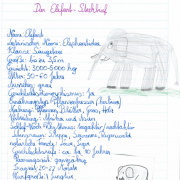 Der Elefant-Steckbrief
Name: Elefant
Lateinischer Name: Elephantidae
Klasse: Säugetiere
Größe: bis zu 3,5 m
Gewicht: 3000-5000 kg
Alter: 50-60 Jahre
Aussehen: grau
Geschlechtsdimorphismus: Ja
Ernährungstyp: Pflanzenfresser (herbivor)
Nahrung: Blätter,
Verbreitung: Afrika und Asien
Schlaf-Wach-Rhythmus: tagaktiv/nachtaktiv
Lebensraum: Steppe, Savanne,
natürliche Feinde: Löwe, Tiger
Geschlechtsreife: ca. 10 Jahren
Paarungszeit: ganzjährig
Tragzeit: 20-22 Monate
Wurfgröße: 1 Jungtier